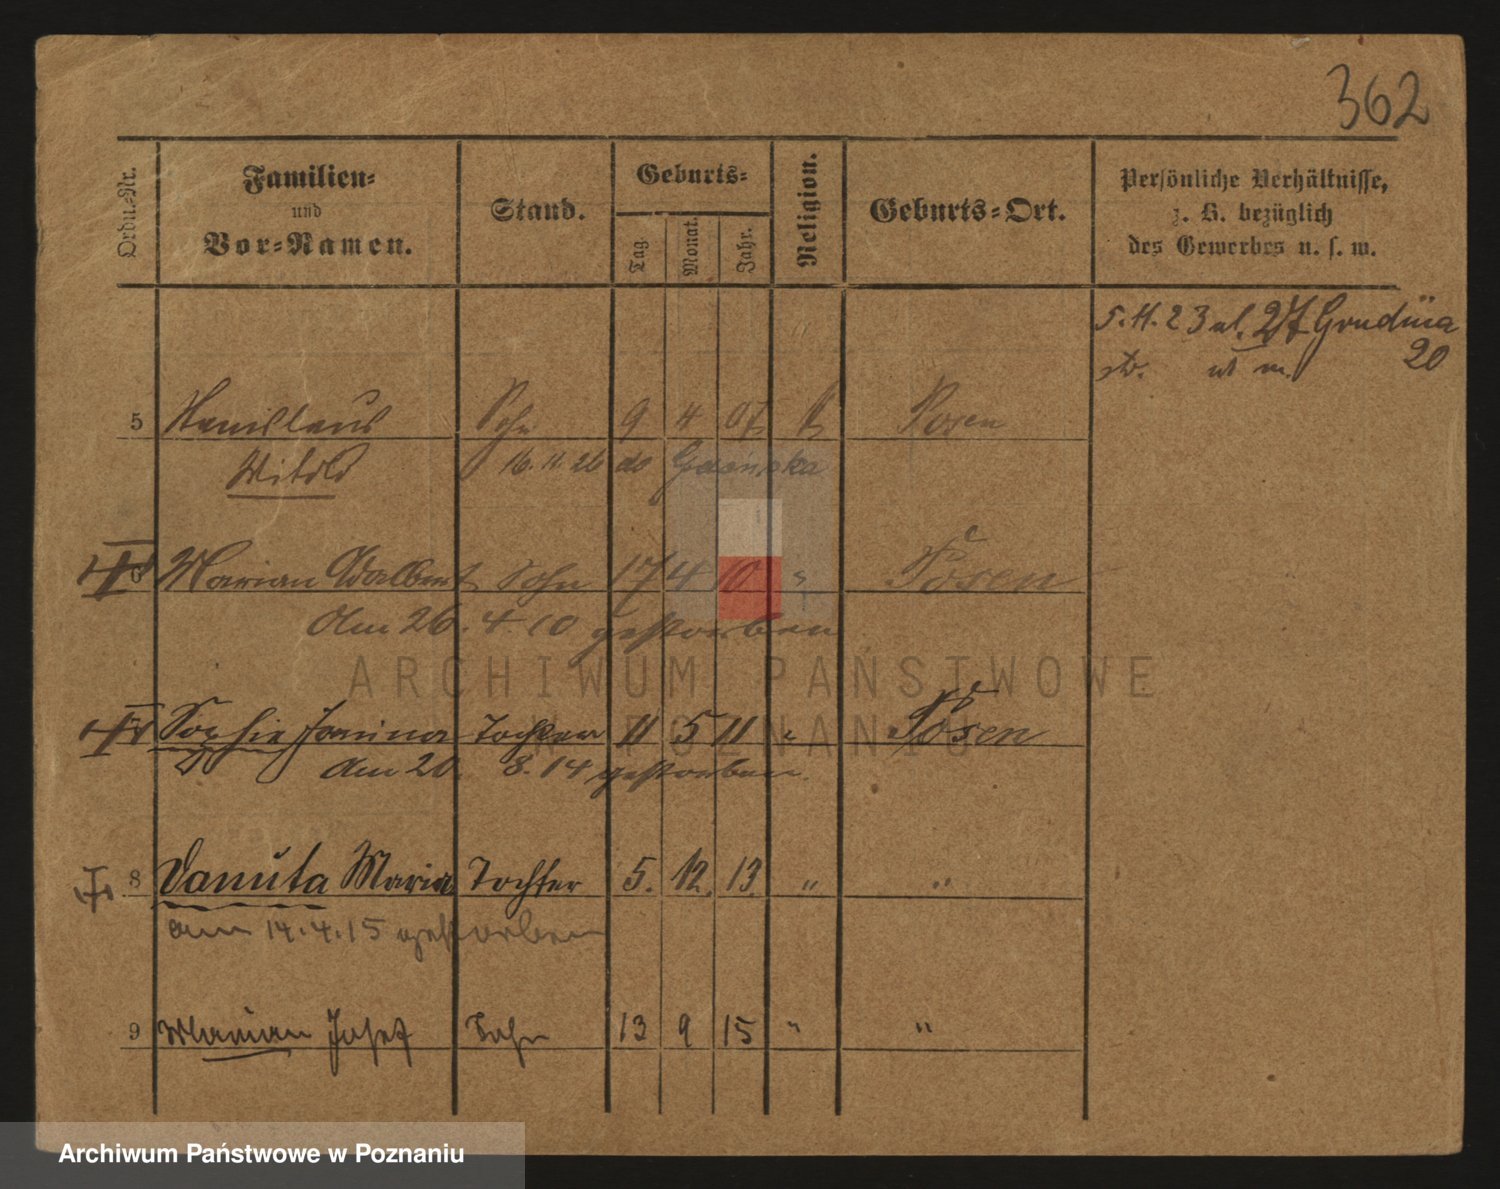 362
Ordn.-Nr.
Familien-
und
Vor-Namen.
Stand.
Geburts-
Tag.
Monat.
Jahr.
Religion.
Geburts-Ort.
Persönliche Verhältnisse,
z. B. bezüglich
des Gewerbes u. s. w.
5. 11. 23 ul. 27 Grudnia
20
5 Stanislaus Sohn 9 4 07 Posen
Witold 16. 11. 26 do Gdańska
6 Marian Adalbert Sohn 17 4 10 " Posen
Am 26. 4. 10 gestorben
Sophie Janina Tochter 11 5 11 " Posen
Am 20. 8. 14 gestorben.
8 Danuta Maria Tochter 5. 12. 13. " "
am 14. 4. 15 gestorben
9 Marian Josef Sohn 13 9 15 " "
ARCHIWUM PAŃSTWOWE
W POZNANIU
Archiwum Państwowe w Poznaniu